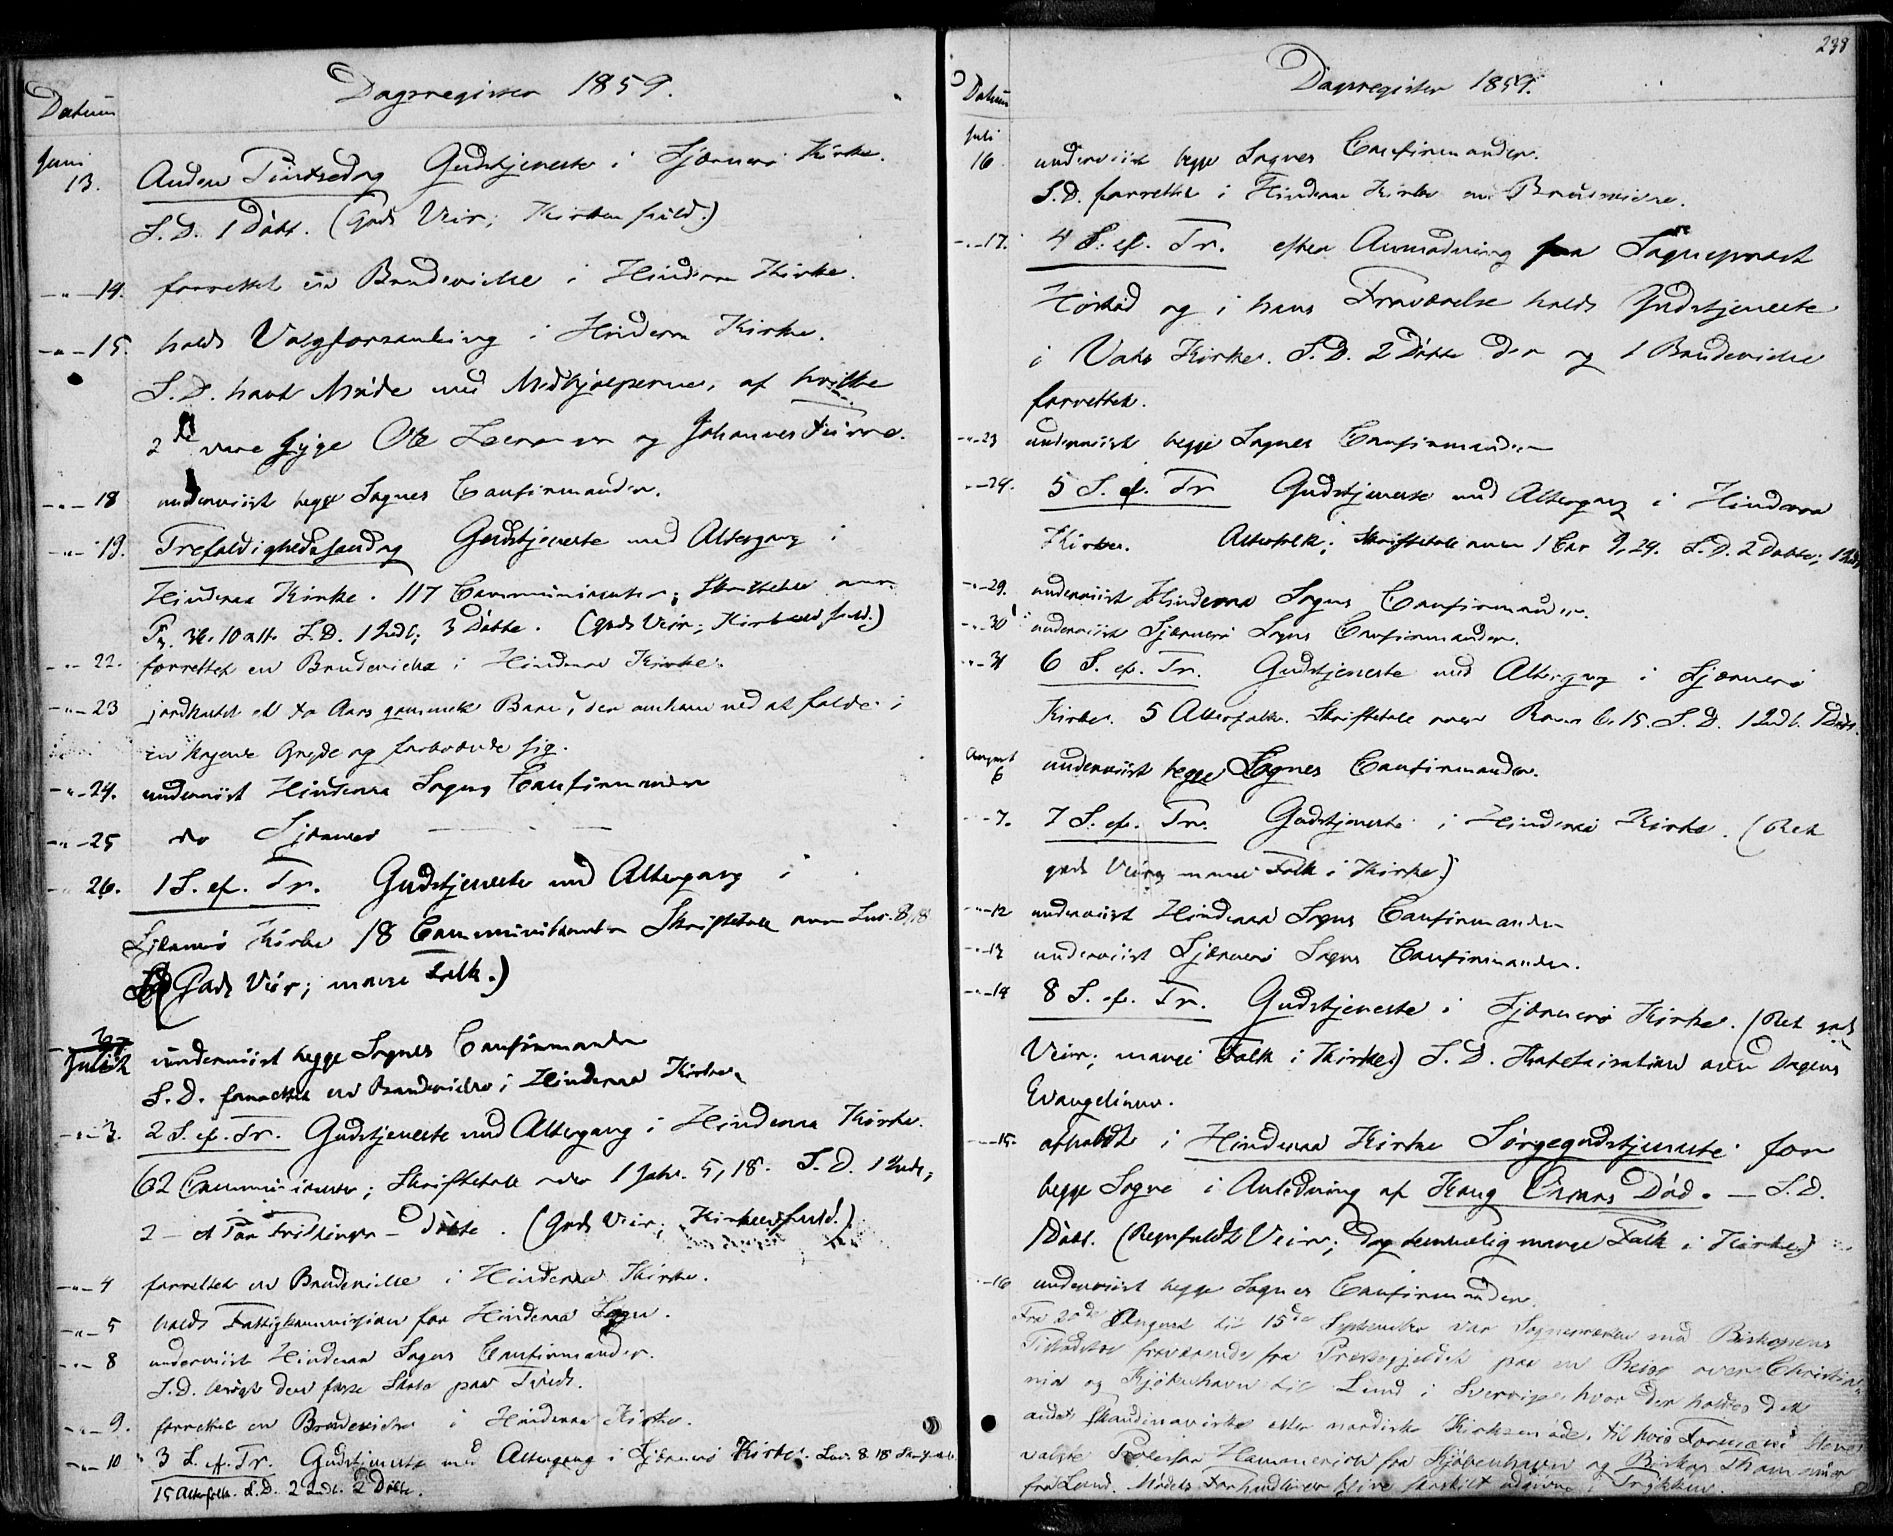 Dagsregister 1859.
Datum
Juni
13. Anden Pintsedag Gudstjeneste i Sjærnerö Kirke.
S. D. 1 Döbt. (Godt Veir; Kirken fuld.)
-"-14. forrettet en Brudevielse i Hinderaa Kirke.
-"-15. holdt Valgforsamling i Hinderaa Kirke.
S. D. havt Möde med Medhjælperne, af hvilke
2de vare syge Ole og Johannes
-"-18 underviist begge Sognes Confirmander.
-"-19. Trefoldighedssøndag Gudstjeneste med Altergang i
Hinderaa Kirke. 117 Communicanter; Skriftetale over
10 S. D. 1 Indl; 3 Döbte. (Godt Veir; Kirken fuld.)
-"-22. forrettet en Brudevielse i Hinderaa Kirke.
-"-23 jordkastet et to Aars gammelt Barn, der omkom ved at falde i
en kogende Gryde og forbrændte sig.
-"-24. underviist Hinderaa Sogns Confirmander
-"-25 do Sjærnerö
-"-26. 1 S. ef. Tr. Gudstjeneste med Altergang i
Sjærnerö Kirke 18 Communikanter Skriftetale over Luc. 8,18
(Godt Veir; mange Folk.)
Juli 2 underviist begge Sognes Confirmander
S. D. forrettet en Brudevielse i Hinderaa Kirke.
-"-3. 2 S. ef. Tr. Gudstjeneste med Altergang i Hinderaa Kirke.
62 Communicanter; Skriftetale over 1 Joh. 5,18. S. D. 1 Indl;
2 – et Par Tvillinger – döbte. (Godt Veir; Kirken fuld.)
-"-4 forrettet en Brudevielse i Hinderaa Kirke.
-"-5 holdt Fattigkommission for Hinderaa Sogn.
-"-8 underviist Hinderaa Sogns Confirmander.
S. D. besögt den faste Skole paa
-"-9. forrettet en Brudevielse i Hinderaa Kirke.
-"-10 3 S. ef. Tr. Gudstjeneste med Altergang i Sjærnerö Kirke. Luc. 8 18
15 Alterfolk. S. D. 2 Indl. 2 Döbte.
238
Dagsregister 1859.
Datum
Juli
16 underviist begge Sognes Confirmander.
S. D. forrettet i Hinderaa Kirke en Brudevielse.
-"-17. 4 S. ef. Tr. efter Anmodning fra Sognepræst
og i hans Fraværelse holdt Gudstjeneste
i Vats Kirke. S. D. 2 Döbte der og 1 Brudevielse
forrettet.
-"-23 underviist begge Sognes Confirmander
-"-24. 5 S. ef. Tr Gudstjeneste med Altergang i Hinderaa
Kirke. Alterfolk; Skriftetale over 1 Cor 9,24. S. D. 2 Döbte; 1 Indl.
-"-29. underviist Hinderaa Sogns Confirmander.
-"-30 underviist Sjærnerö Sogns Confirmander.
-"-31 6 S. ef. Tr. Gudstjeneste med Altergang i Sjærnerö
Kirke. 5 Alterfolk. Skriftetale over Rom 6. 15. S. D. 1 Indl. 1 Döbt.
August
6 underviist begge Sognes Confirmander.
-"-7. 7 S. ef. Tr. Gudstjeneste i Hinderaa Kirke. (Ret
godt Veir mange Folk i Kirke)
-"-12 underviist Hinderaa Sogns Confirmander
-"-13 underviist Sjærnerö Sogns Confirmander.
-"-14 8 S. ef. Tr. Gudstjeneste i Sjærnerö Kirke. (Ret godt
Veir; mange Folk i Kirke) S. D. Katekisation over Dagens
Evangelium.
-"-15. afholdt i Hinderaa Kirke Sörgegudstjeneste for
begge Sogne i Anledning af Kong Oscars Död. – S. D.
1 Döbt. (Regnfuldt Veir; dog temmelig mange Folk i Kirke)
-"-16 underviist begge Sognes Confirmander.
Fra 20de August til 15de September var Sognepræsten med Biskoppens
Tilladelse fraværende fra Præstegjeldet paa en Reise over Christia-
nia og Kjöbenhavn til Lund i Sverrige, hvor der holdtes det
andet skandinaviske eller nordiske Kirkemöde, til hvis Formænd bleve
valgte Professor Hammerich fra Kjöbenhavn og Biskop Thomander
fra Lund. Mödets Forhandlinger blive særskilt udgivne i Trykken.